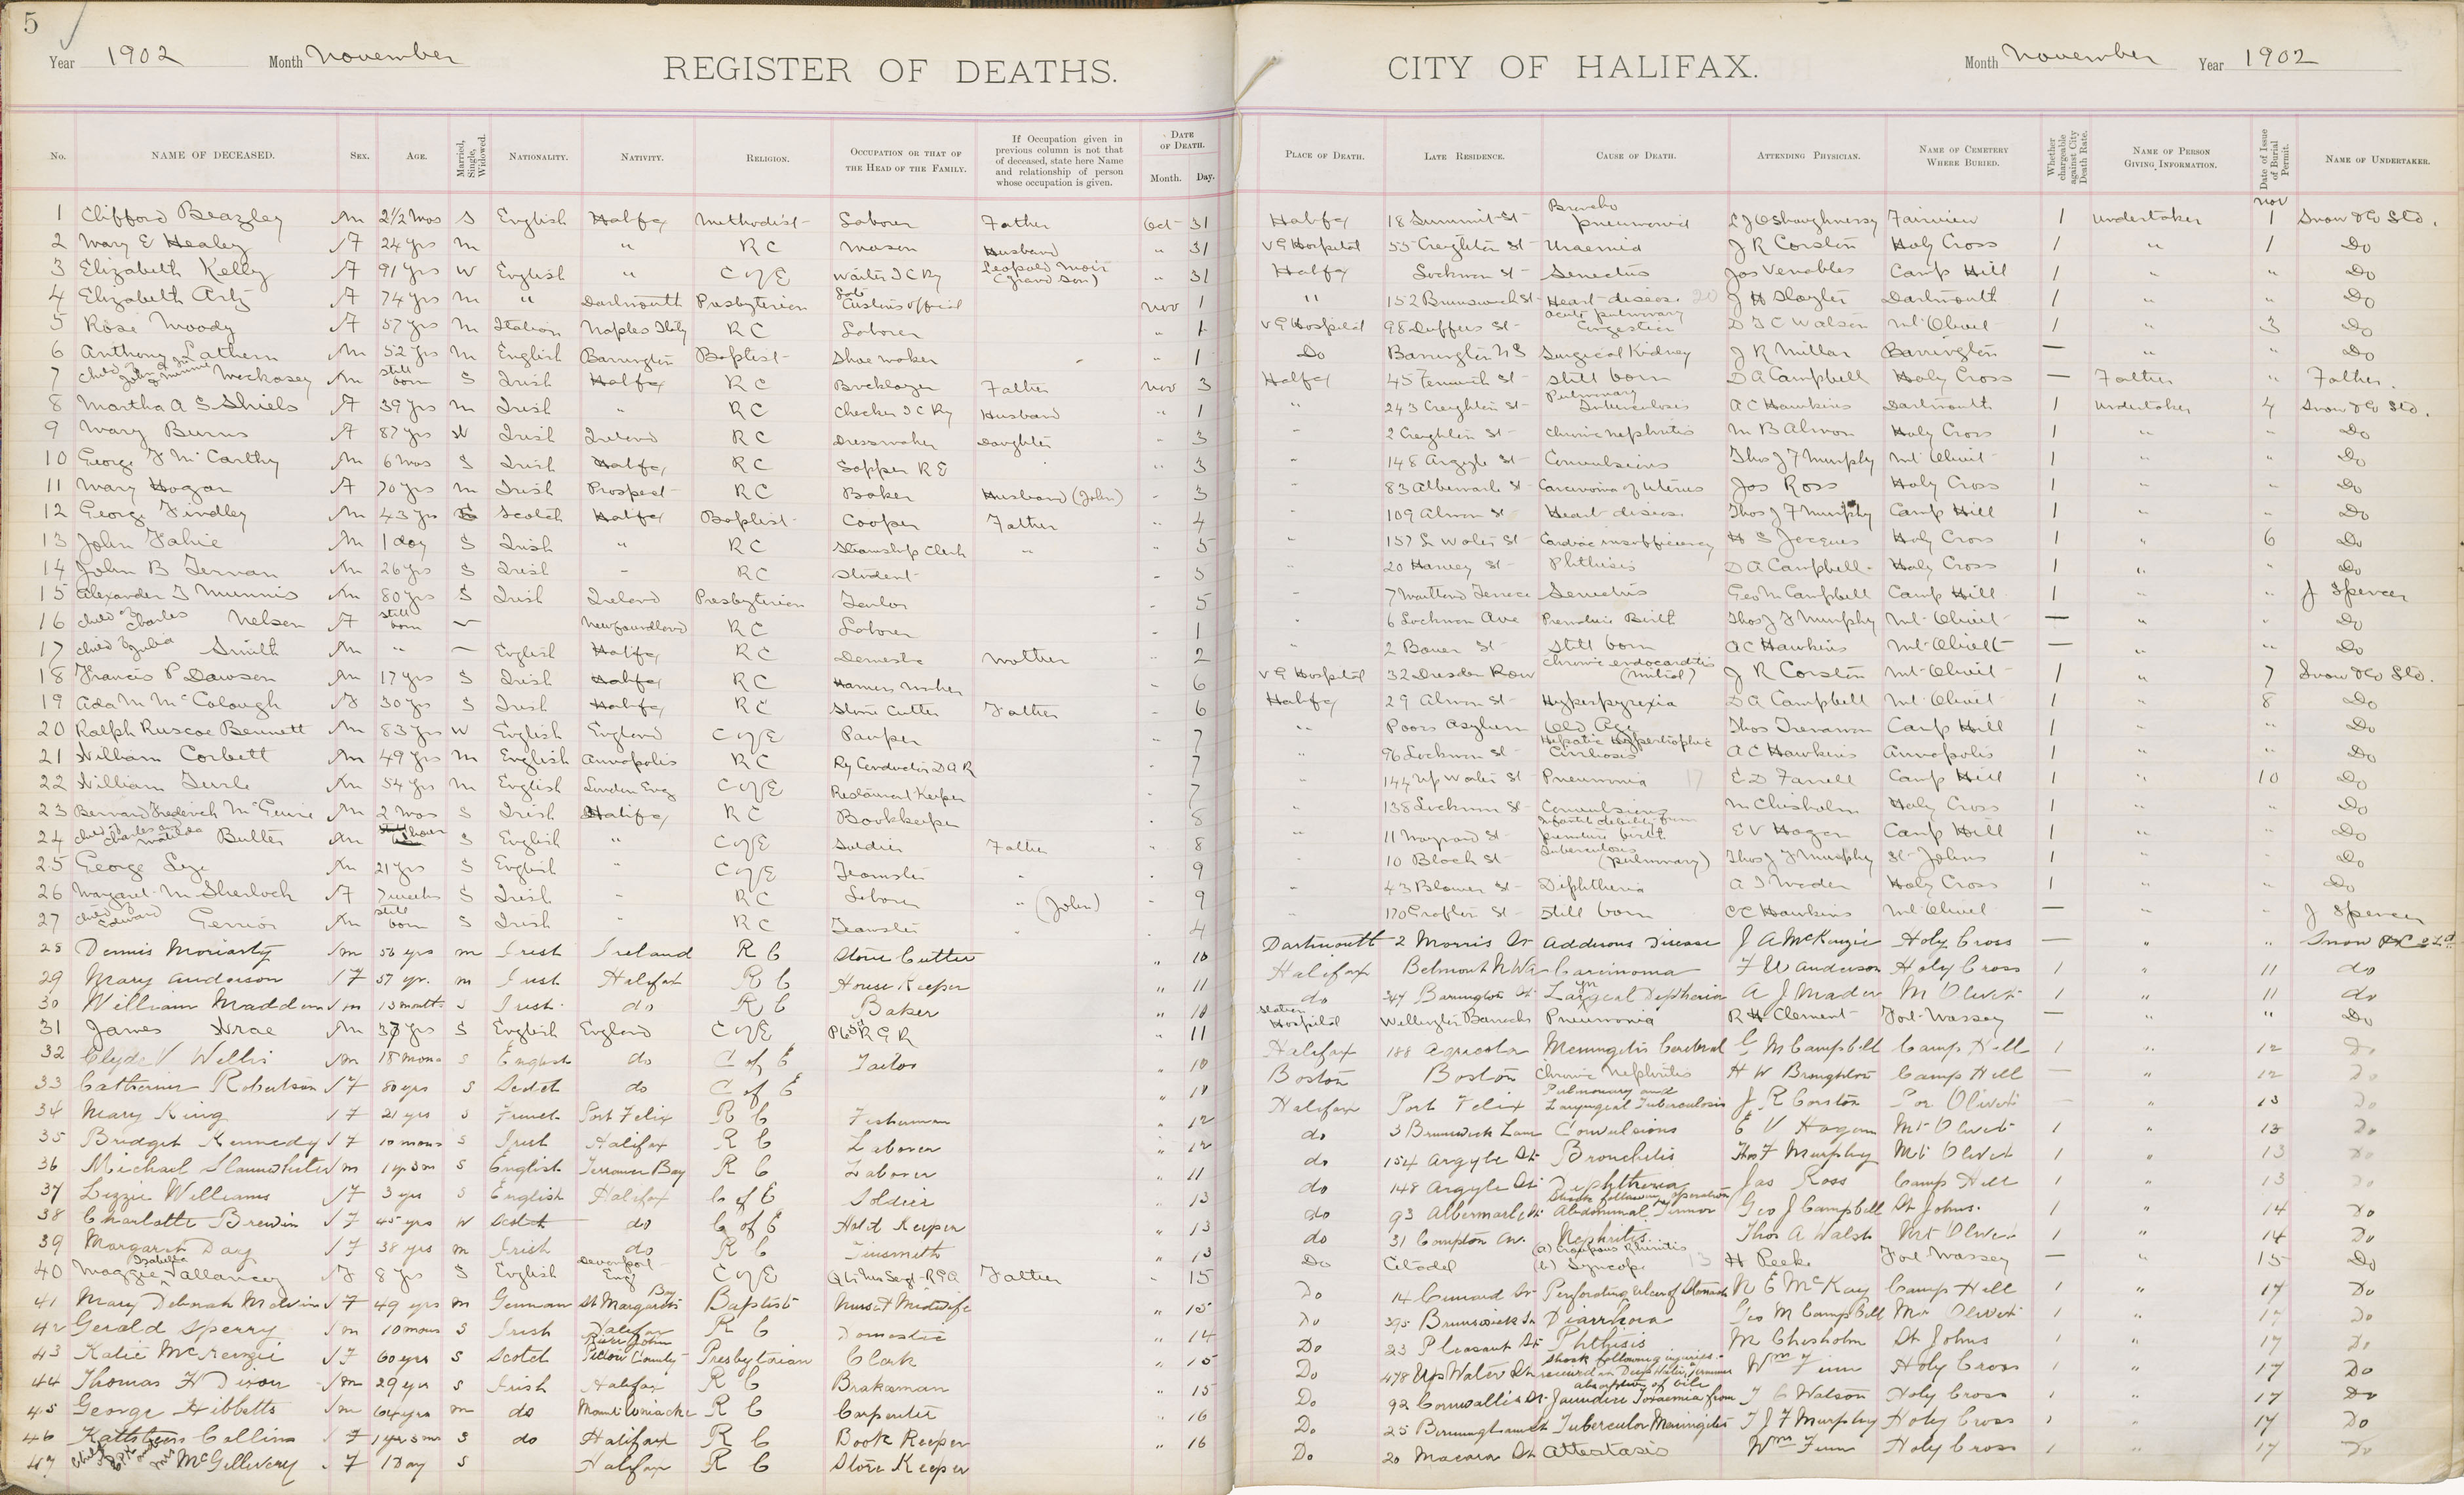 5
Year 1902 Month November REGISTER OF DEATHS. CITY OF HALIFAX. Month November Year 1902
No. NAME OF DECEASED. SEX. AGE. Married, Single, Widowed. NATIONALITY. NATIVITY. RELIGION. OCCUPATION OR THAT OF THE HEAD OF THE FAMILY. If Occupation given in previous column is not that of deceased, state here Name and relationship of person whose occupation is given. DATE OF DEATH. Month. Day. PLACE OF DEATH. LATE RESIDENCE. CAUSE OF DEATH. ATTENDING PHYSICIAN. NAME OF CEMETERY WHERE BURIED. Whether chargeable against City Death Rate. NAME OF PERSON GIVING INFORMATION. Date of Issue of Burial Permit. NAME OF UNDERTAKER.
1 Clifford Beazley M 2 1/2 mos S English Halifax Methodist Laborer Father Oct 31 Halifax 18 Summit St Broncho pneumonia L J OShaughnessy Fairview 1 Undertaker Nov 1 Snow & Co Ltd.
2 Mary E Healey F 24 yrs M " R C Mason Husband " 31 V G Hospital 55 Creighton St Uraemia J R Corston Holy Cross 1 " 1 Do
3 Elizabeth Kelly F 91 yrs W English " C of E Waiter I C Ry Leopold Moir (Grand Son) " 31 Halifax Lockman St Senectus Jas Venables Camp Hill 1 " " Do
4 Elizabeth Artz F 74 yrs M " Dartmouth Presbyterian Late Customs Official Nov 1 " 152 Brunswick St Heart disease 20 J H Slayter Dartmouth 1 " " Do
5 Rose Moody F 57 yrs M Italian Naples Italy R C Laborer " 1 V G Hospital 98 Duffus St acute pulmonary Congestion D T C Watson Mt Olivet 1 " 3 Do
6 Anthony Lathern M 52 yrs M English Barrington Baptist Shoe maker " 1 Do Barrington N S Surgical Kidney J R Millar Barrington — " " Do
7 Child of John & Minnie Mockasey M still born S Irish Halifax R C Bricklayer Father Nov 3 Halifax 45 Fenwick St Still born D A Campbell Holy Cross — Father " Father.
8 Martha A S Shiels F 39 yrs M Irish " R C Checker I C Ry Husband " 1 " 243 Creighton St Pulmonary Tuberculosis A C Hawkins Dartmouth 1 Undertaker 4 Snow & Co Ltd.
9 Mary Burns F 87 yrs W Irish Ireland R C Dressmaker Daughter " 3 " 2 Creighton St Chronic nephritis M B Almon Holy Cross 1 " " Do
10 George F McCarthy M 6 mos S Irish Halifax R C Sapper R E " 3 " 148 Argyle St Convulsions Thos J F Murphy Mt Olivet 1 " " Do
11 Mary Hogan F 70 yrs M Irish Prospect R C Baker Husband (John) " 3 " 83 Albemarle St Carcinoma of Uterus Jas Ross Holy Cross 1 " " Do
12 George Findley M 43 yrs S Scotch Halifax Baptist Cooper Father " 4 " 109 Almon St Heart disease Thos J F Murphy Camp Hill 1 " " Do
13 John Fahie M 1 day S Irish " R C Steamship Clerk " " 5 " 157 L Water St Cardiac insufficiency H S Jacques Holy Cross 1 " 6 Do
14 John B Ternan M 26 yrs S Irish " R C Student " 5 " 20 Harvey St Phthisis D A Campbell Holy Cross 1 " " Do
15 Alexander T Munnis M 80 yrs S Irish Ireland Presbyterian Tailor " 5 " 7 Maitland Terrace Senectus Geo M Campbell Camp Hill 1 " " J Spencer
16 Child of Charles Nelson F still born — Newfoundland R C Laborer " 1 " 6 Lockman Ave Premature Birth Thos J F Murphy Mt Olivet — " " Do
17 Child of Julia Smith M " — English Halifax R C Domestic Mother " 2 " 2 Bauer St Still born A C Hawkins Mt Olivett — " " Do
18 Francis P Dawson M 17 yrs S Irish Halifax R C Harness maker " 6 V G Hospital 32 Dresden Row Chronic endocarditis (Mitral) J R Corston Mt Olivet 1 " 7 Snow & Co Ltd.
19 Ada M McColough F 30 yrs S Irish Halifax R C Stone Cutter Father " 6 Halifax 29 Almon St Hyperpyrexia D A Campbell Mt Olivet 1 " 8 Do
20 Ralph Ruscoe Bennett M 83 yrs W English England C of E Pauper " 7 " Poors Asylum Old Age Thos Trenaman Camp Hill 1 " " Do
21 William Corbett M 49 yrs M English Annapolis R C Ry Conductor D A R " 7 " 96 Lockman St Hepatic Hypertrophic Cirrhosis A C Hawkins Annapolis 1 " " Do
22 William Searle M 54 yrs M English London Eng C of E Restaurant Keeper " 7 " 144 Up Water St Pneumonia 17 E D Farrell Camp Hill 1 " 10 Do
23 Bernard Frederick M 2 mos S Irish Halifax R C Bookkeeper " 8 " 138 Lockman St Convulsions M Chisholm Holy Cross 1 " " Do
24 Child of Charles and Matilda Butler M S English " C of E Soldier Father " 8 " 11 Maynard St Infantile debility from premature birth E V Hogan Camp Hill 1 " " Do
25 George M 21 yrs S English " C of E Teamster " 9 " 10 Bloch St Tuberculosis (pulmonary) Thos J F Murphy St Johns 1 " " Do
26 Margaret M Sherlock F 7 weeks S Irish " R C Laborer " (John) " 9 " 43 Blowers St Diphtheria A I Mader Holy Cross 1 " " Do
27 Child of Edward Gerrior M still born S Irish " R C Teamster " 4 " 170 Grafton St Still born A C Hawkins Mt Olivet — " " J Spencer
28 Dennis Moriarty M 56 yrs M Irish Ireland R C Stone Cutter " 10 Dartmouth 2 Morris St Addisons Disease J A McKenzie Holy Cross — " " Snow & Co Ltd
29 Mary Anderson F 57 yr. M Irish Halifax R C House Keeper " 11 Halifax Belmont N W A Carcinoma F W Anderson Holy Cross 1 " 11 do
30 William Madden M 13 month S Irish do R C Baker " 10 do 347 Barrington St Laryngeal Diphtheria A J Mader Mt Olivet 1 " 11 do
31 James M 37 yrs S English England C of E R G R " 11 Station Hospital Wellington Barracks Pneumonia R H Clement Fort Massey — " " Do
32 Clyde V Willis M 18 mons S English do C of E Tailor " 10 Halifax 188 Agricola Meningitis Cerebral G M Campbell Camp Hill 1 " 12 Do
33 Catherine Robertson F 80 yrs S Scotch do C of E " 10 Boston Boston Chronic Nephritis H W Broughton Camp Hill — " 12 Do
34 Mary King F 21 yrs S French Port Felix R C Fisherman " 12 Halifax Port Felix Pulmonary and Laryngeal Tuberculosis J R Corston Por Olivet — " 13 Do
35 Bridget Kennedy F 10 mons S Irish Halifax R C Laborer " 12 do 3 Brunswick Lane Convulsions E V Hogan Mt Olivet 1 " 13 Do
36 Michael Slaunwhite M 1 yr 3 m S English Terrance Bay R C Laborer " 11 do 154 Argyle St Bronchitis Thos F Murphy Mt Olivet 1 " 13 Do
37 Lizzie Williams F 3 yrs S English Halifax C of E Soldier " 13 do 148 Argyle St Diphtheria Jas Ross Camp Hill 1 " 13 Do
38 Charlotte Brewin F 45 yrs W Scotch do C of E Hotel Keeper " 13 do 93 Albermarle St Shock following operation Abdominal Tumor Geo J Campbell St Johns. 1 " 14 Do
39 Margaret Day F 38 yrs M Irish do R C Tinsmith " 13 do 31 Compton Av. Nephritis Thos A Walsh Mt Olivet 1 " 14 Do
40 Maggie Isabella Vallancey F 8 yrs S English Devonport Eng C of E Qtr Mr Sergt R G A Father " 15 Do Citadel (a) Croupous Rhinitis (b) Syncope 13 H Peeke Fort Massey — " 15 Do
41 Mary Deborah Melvin F 49 yrs M German St Margarets Bay Baptist Nurse & Midwife " 15 Do 14 Cunard St Perforating Ulcer of Stomach N E McKay Camp Hill 1 " 17 Do
42 Gerald Sperry M 10 mons S Irish Halifax R C Domestic " 14 Do 395 Brunswick St Diarrhoea Geo M Campbell Mt Olivet 1 " 17 Do
43 Katie McKenzie F 60 yrs S Scotch River John Pictou County Presbyterian Clerk " 15 Do 23 Pleasant St Phthisis M Chisholm St Johns 1 " 17 Do
44 Thomas H Dixon M 29 yrs S Irish Halifax R C Brakeman " 15 Do 478 Up Water St Shock following injuries received in Deep Water Terminus Wm F Finn Holy Cross 1 " 17 Do
45 George Hibbetts M 64 yrs M do R C Carpenter " 16 Do 92 Cornwallis St Jaundice Toxaemia from absorption of bile T C Watson Holy Cross 1 " 17 Do
46 Kathleen Collins F 1 yr 5 mos S do Halifax R C Book Keeper " 16 Do 25 Birmingham St Tubercular Meningitis T J F Murphy Holy Cross 1 " 17 Do
47 Child of Mrs McGillivery F 1 Day S Halifax R C Store Keeper Do 20 Macara St Wm Finn Holy Cross 1 " 17 Do